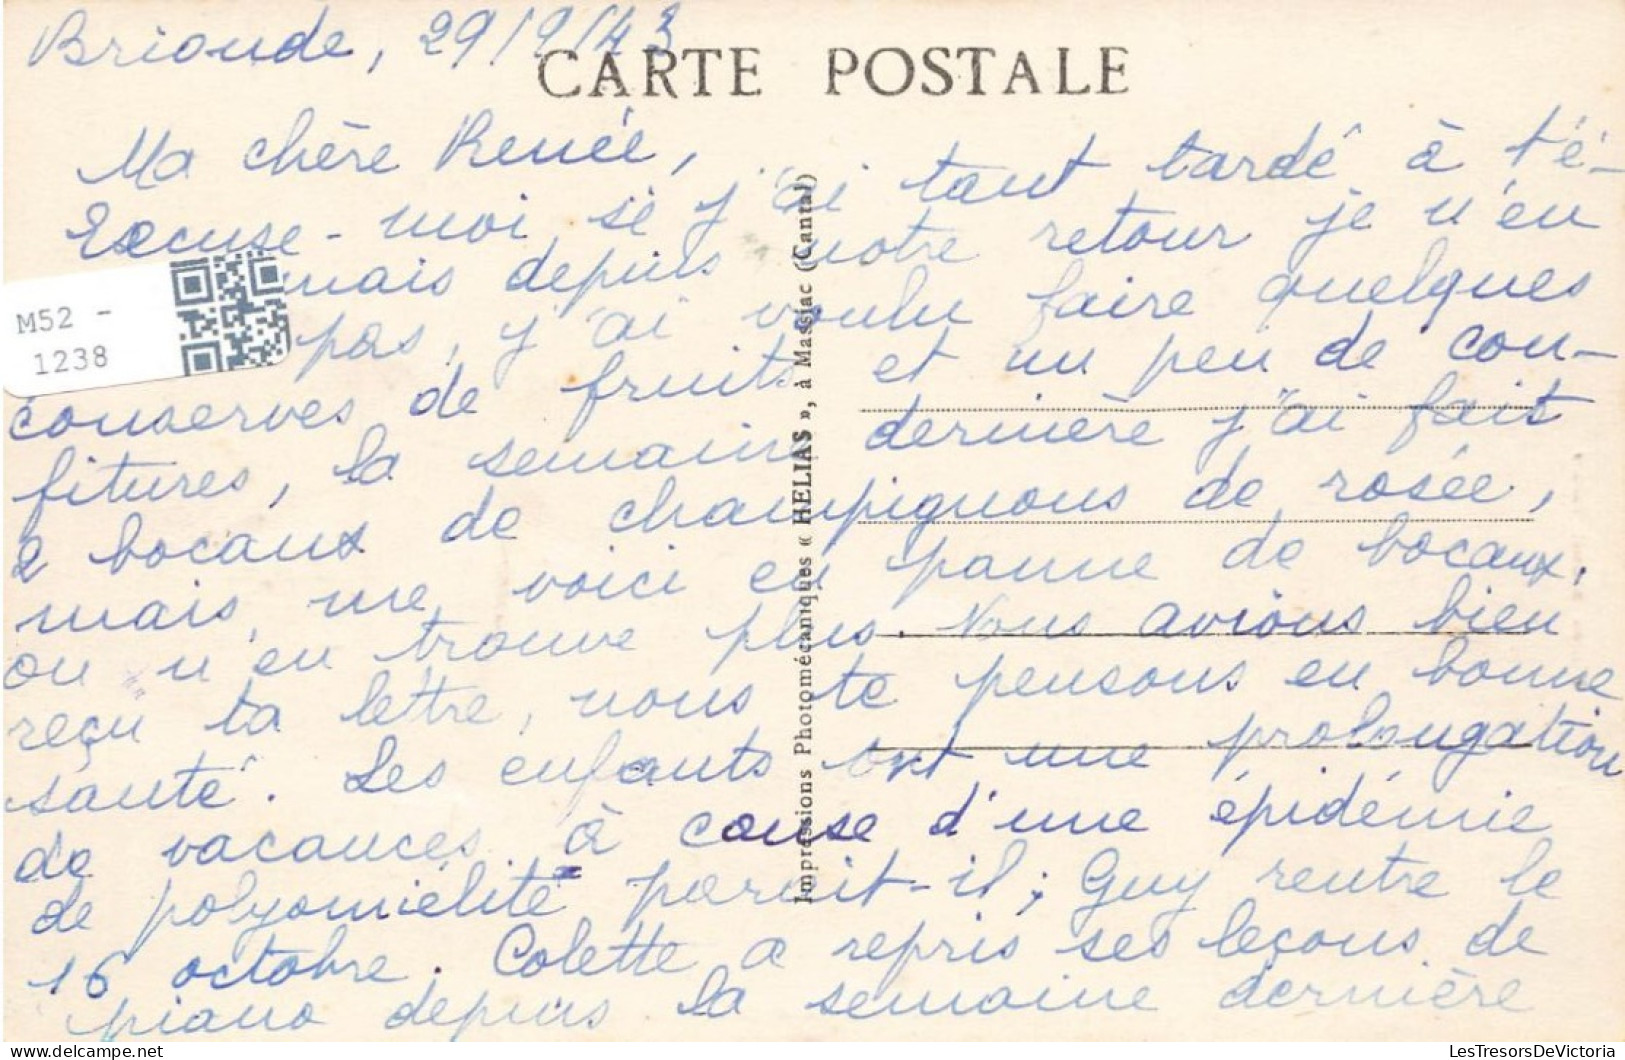 Brioude, 29/9/43
CARTE POSTALE
Ma chère Renée,
Excuse-moi si j'ai tant tardé à t'é-
mais depuis notre retour je n'en
pas, j'ai voulu faire quelques
conserves de fruits et un peu de con-
fitures, la semaine dernière j'ai fait
2 bocaux de champignons de rosée,
mais, me voici en panne de bocaux,
on n'en trouve plus. Nous avions bien
reçu ta lettre, nous te pensons en bonne
santé. Les enfants ont une prolongation
de vacances à cause d'une épidémie
de polyomiélité paroit-il; Guy rentre le
16 octobre. Colette a repris ses leçons de
piano depuis la semaine dernière
Impressions Photomécaniques « HELIAS », à Massiac (Cantal)
M52 -
1238
LesTresorsDeVictoria
delcampe.net